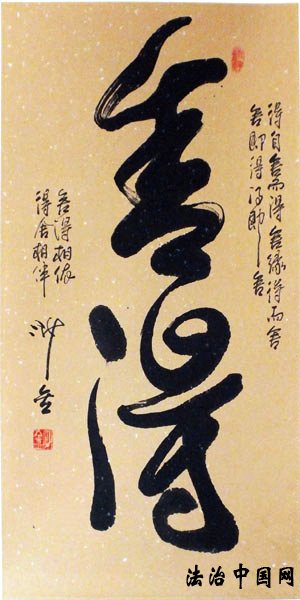 得自舍而得舍缘得而舍
舍即得得即舍
舍得
舍得相依
得舍相伴
法治中国网